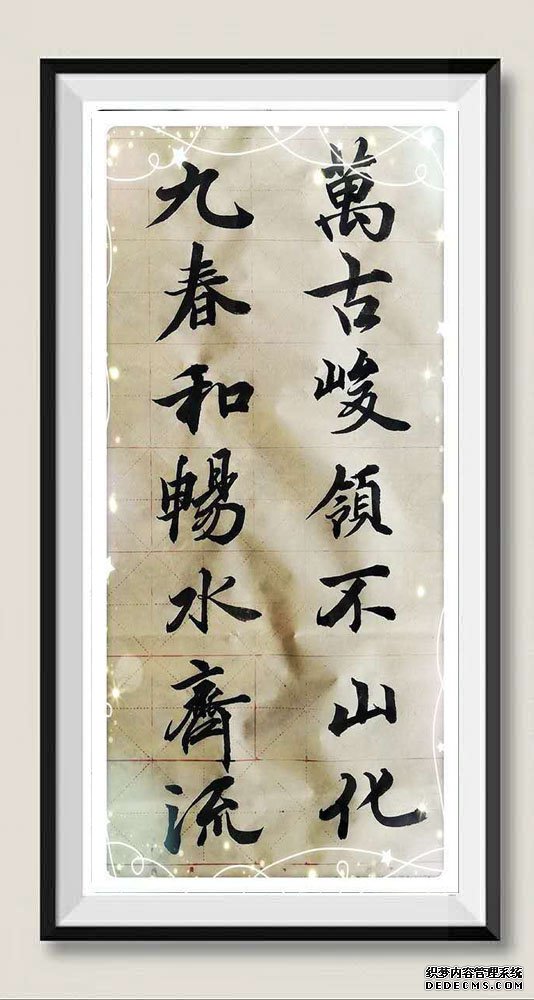 萬古峻領不山化
九春和暢水齊流
织梦内容管理系统
DEDECMS.COM